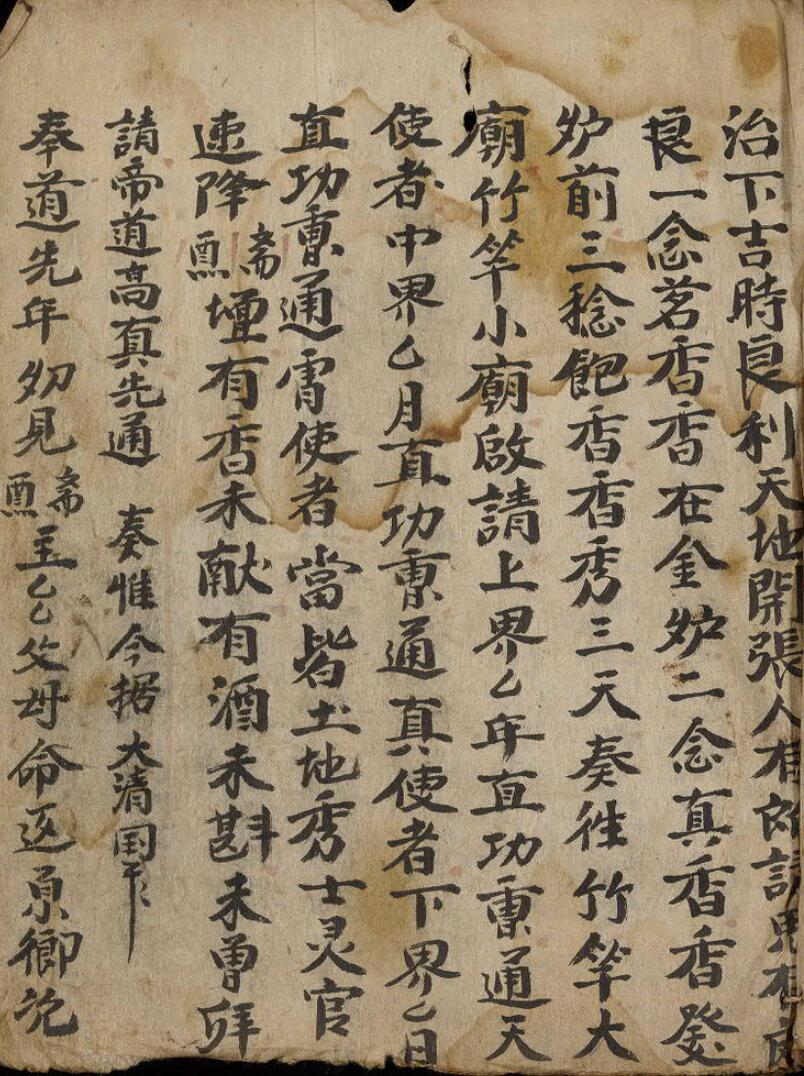 治下吉時良利天地開張人有所請鬼有
良一念茗香香在金炉二念真香香發
炉前三稔飽香香秀三天奏徃竹竿大
廟竹竿小廟啟請上界乙年直功曹通天
使者中界乙月直功曹通真使者下界乙日
直功曹通霄使者當皆土地秀士灵官
速降齋醮壇有香未献有酒未斟未曾
請帝道高真先通 奏惟今据大清国
奉道先年幼見齋醮主乙乙父母命返原鄉